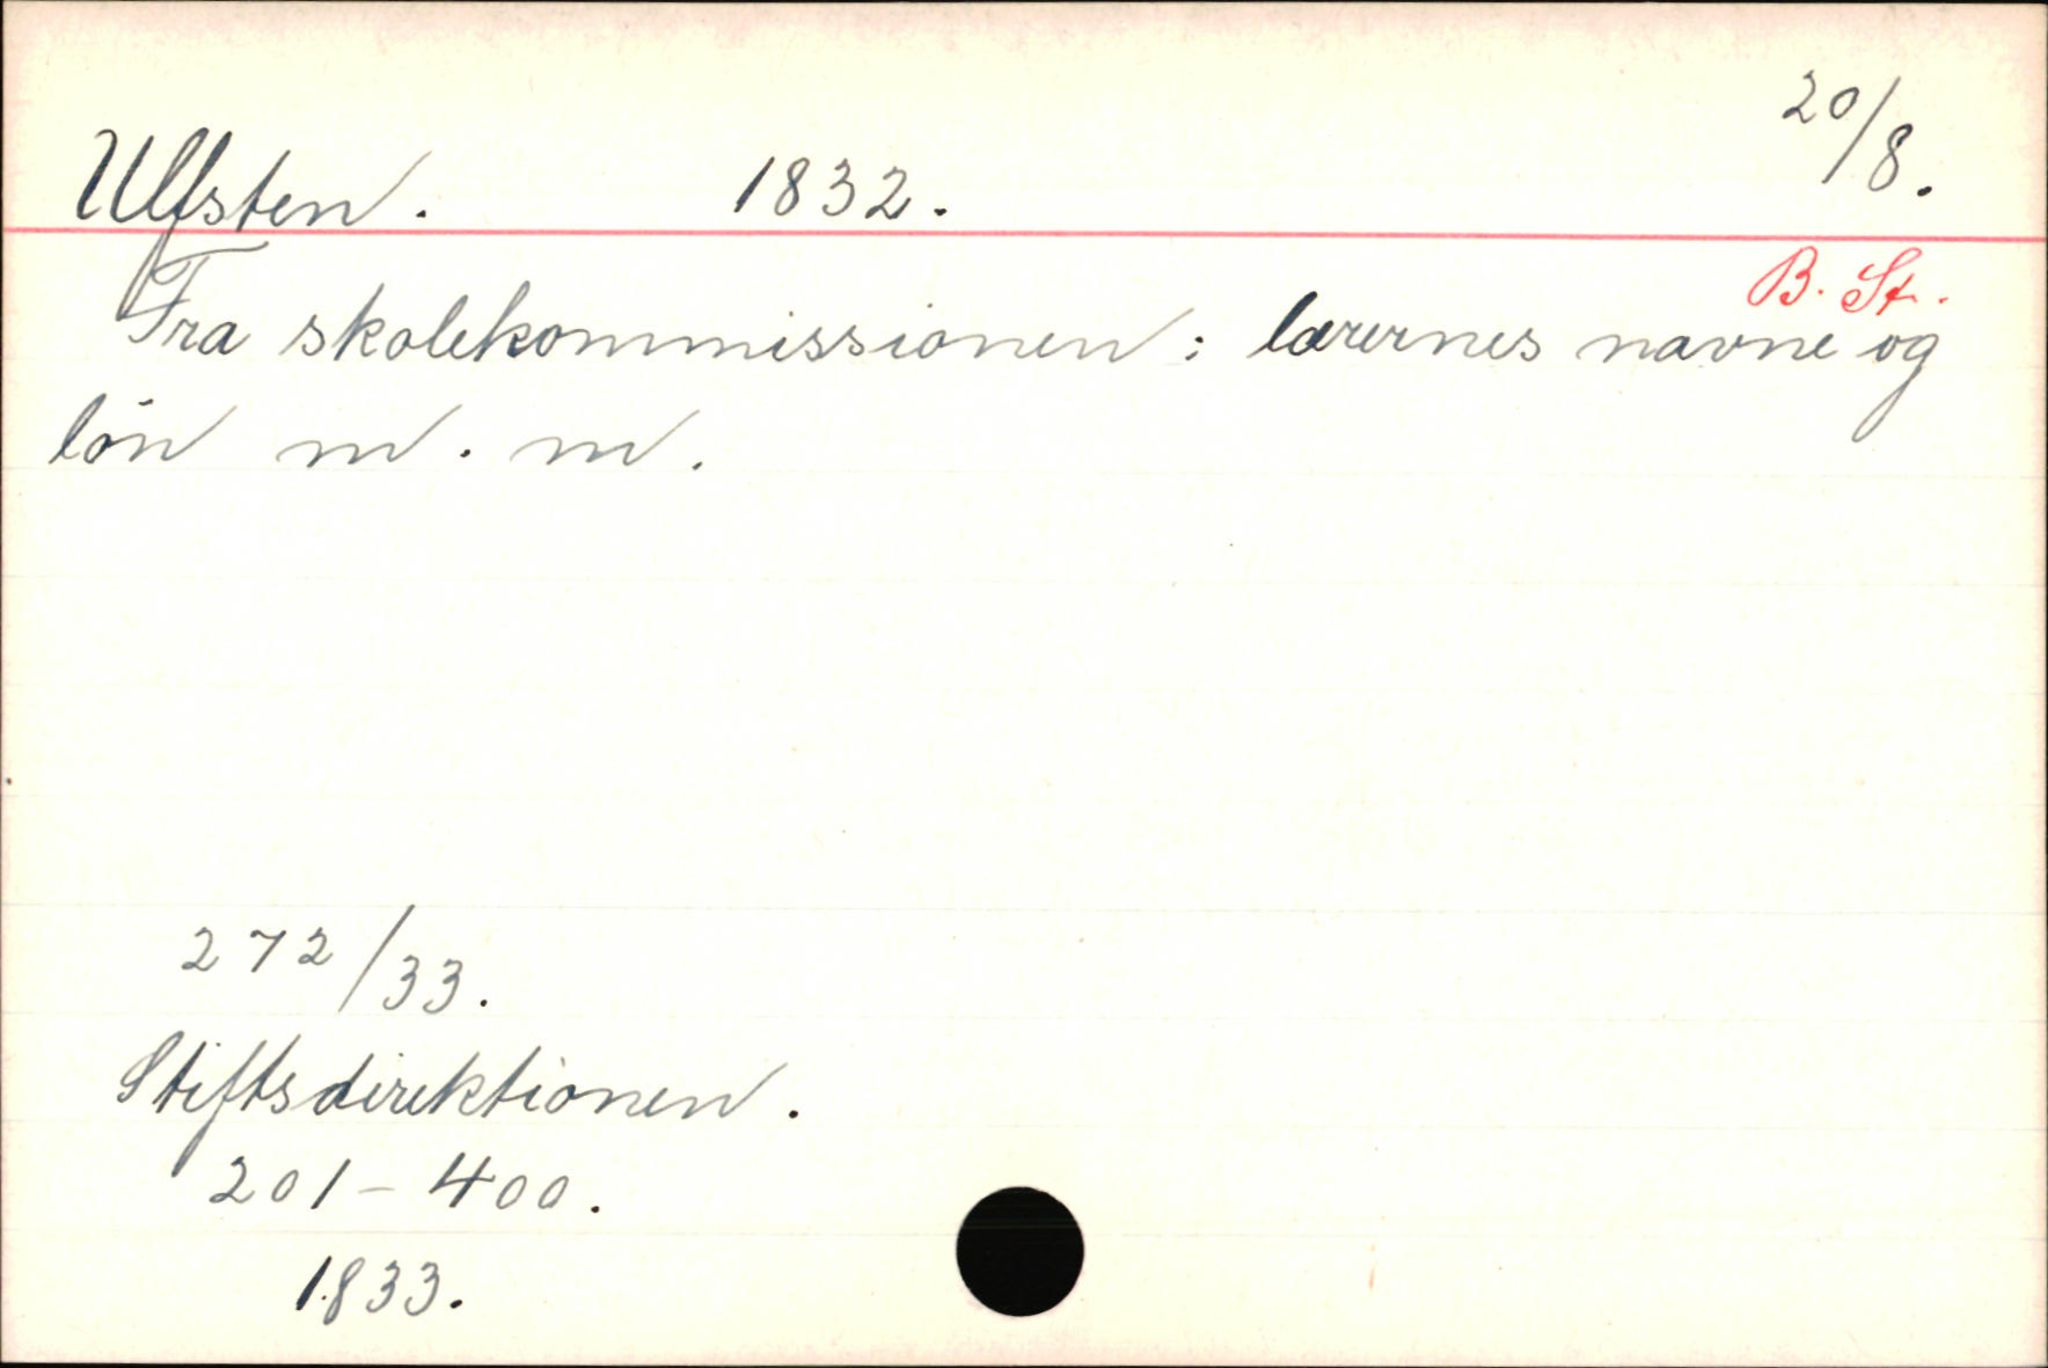 Ulfsten. 1832. 20/8.
B. St.
Fra skolekommissionen: lærernes navne og
lön m. m.
272/33.
Stiftsdirektionen.
201-400.
1833.